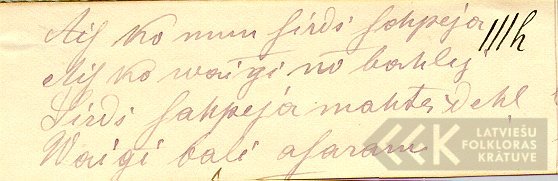 Aiſ ko mun ſirdi ſahpeja
111h
Aiſ ko waigi no bahlej
Sirdi ſahpeja mahteſ dehl
Waigi bali aſaram
LATVIEŠU
FOLKLORAS
KRĀTUVE